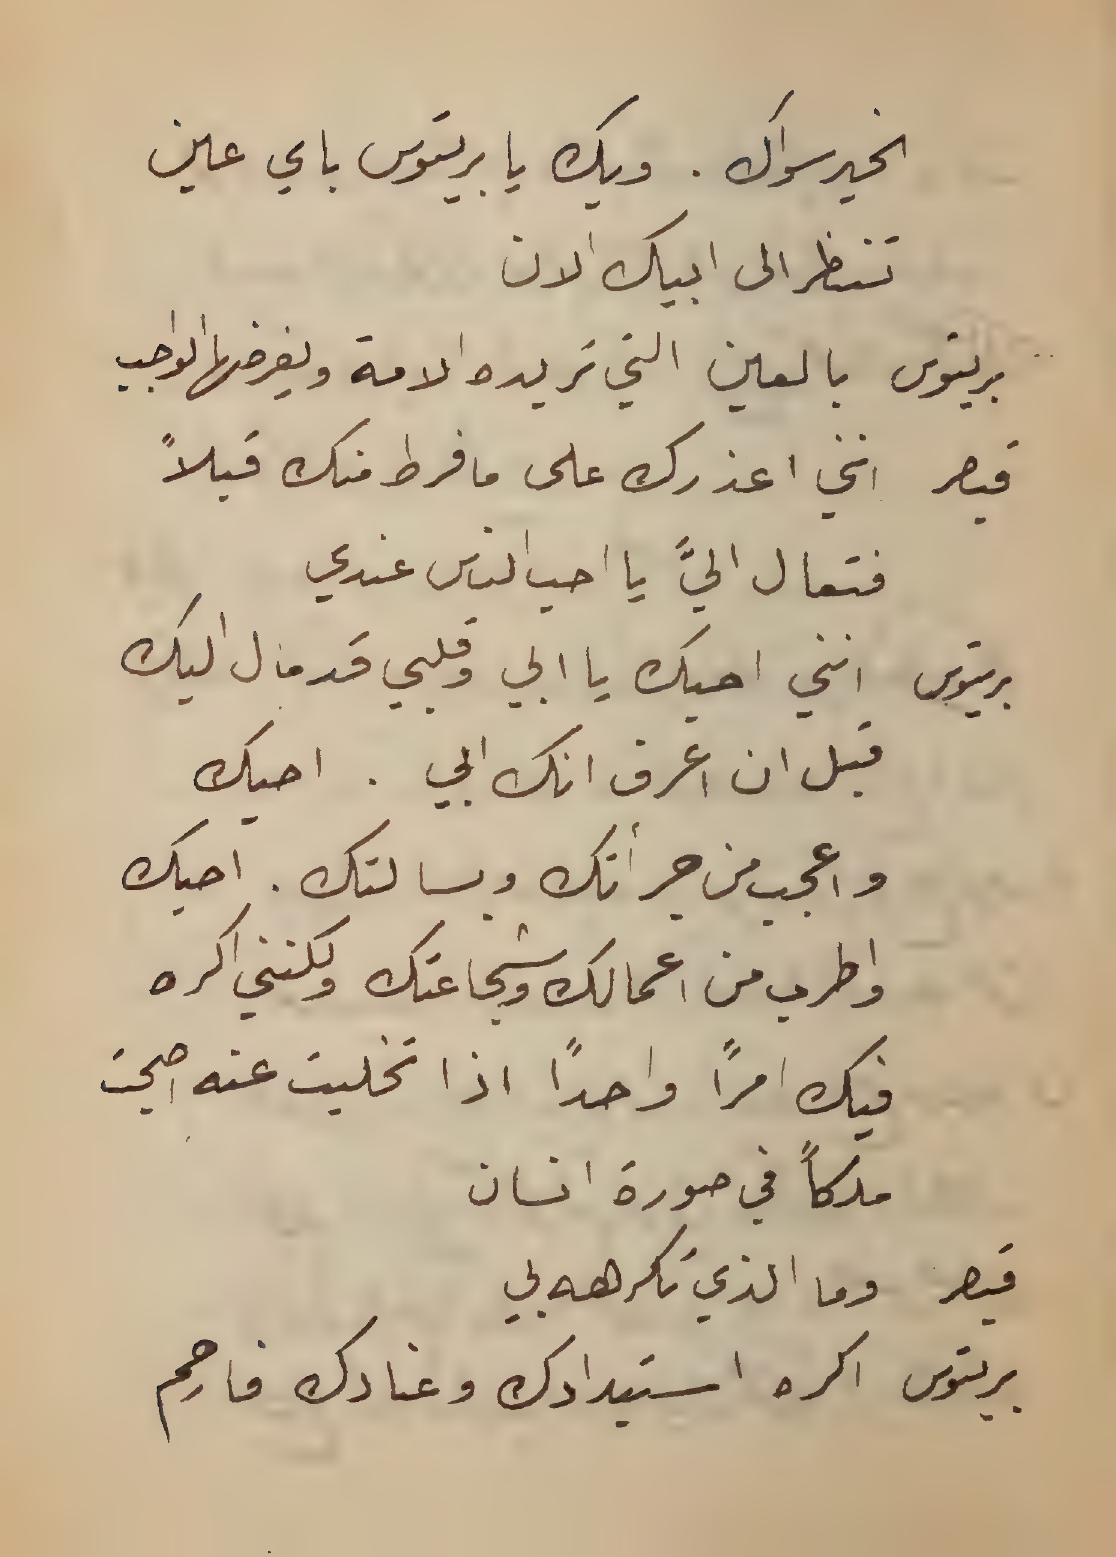 الخير سواك . ويك يا بريتوس باي عين
تنظر الى ابيك الان
بريتوس بالعين التي تريدها الامة ويفرضها الواجب
قيصر انني اعذرك على ما فرط منك قبلاً
فتعال اليَّ يا احب الناس عندي
بريتوس انني احبك يا ابي وقلبي قد مال اليك
قبل ان اعرف انك ابي . احبك
واعجب من جرأتك وبسالتك . احبك
واطرب من اعمالك وشجاعتك ولكنني اكره
فيك امرًا واحدًا اذا تخليت عنه اصبحت
ملاكاً في صورة انسان
قيصر وما الذي تكرهه بي
بريتوس اكره استبدادك وعنادك فارحم